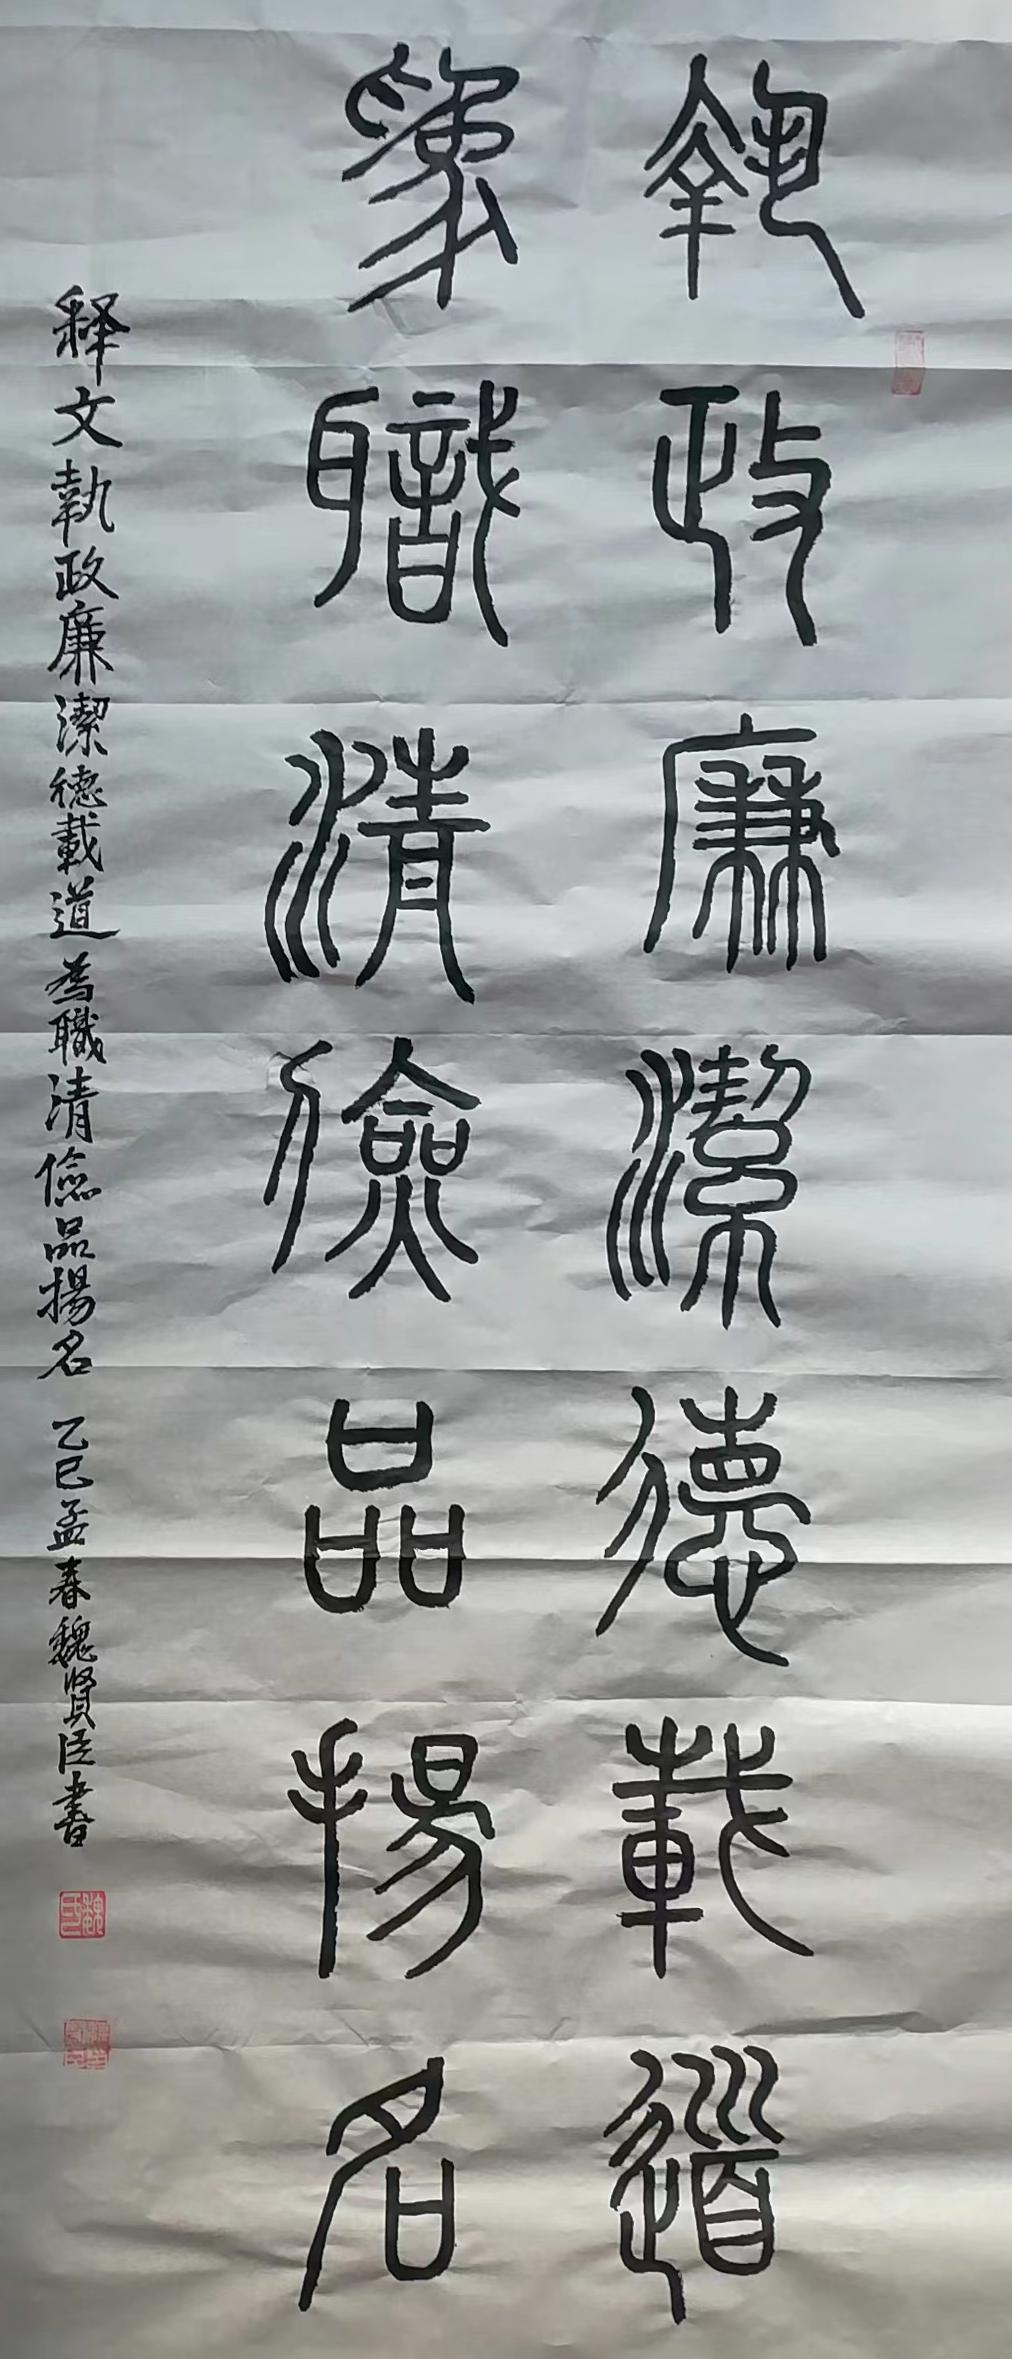 執政廉潔德載道
為職清儉品揚名
释文執政廉潔德載道為職清儉品揚名 乙巳孟春魏賢臣書